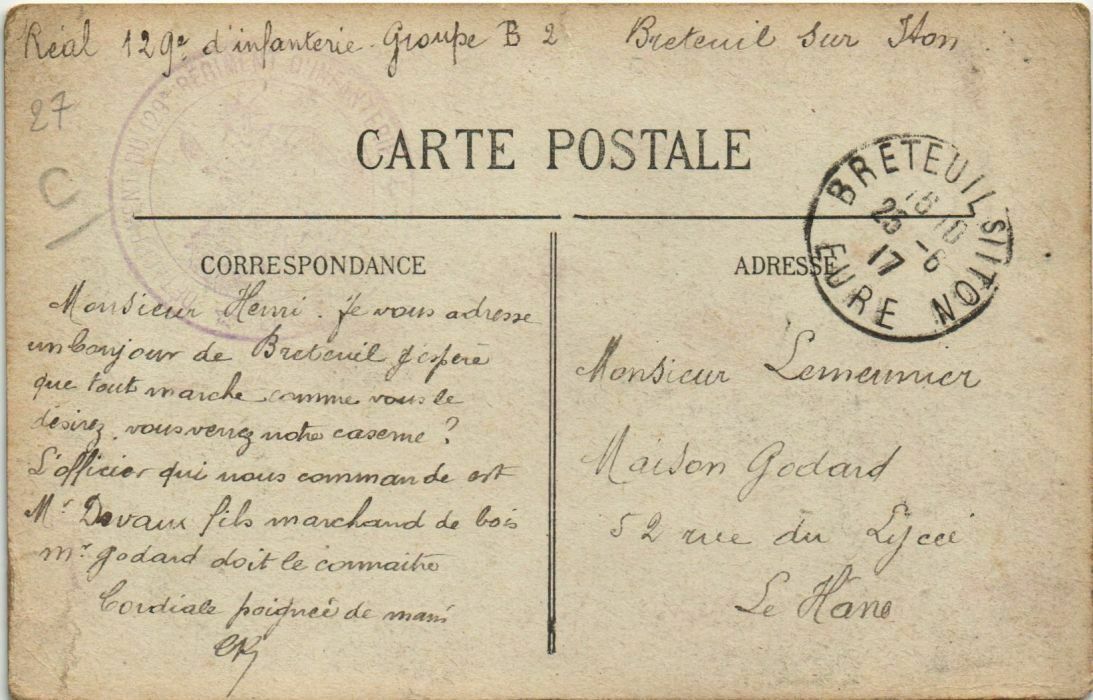 Réal 129e d'infanterie. Groupe B 2 Breteuil sur Iton
27
DU 129e RÉGIMENT D'INFANTERIE
CARTE POSTALE
BRETEUIL S/ITON
25 -6
17
EURE
CORRESPONDANCE
Monsieur Henri. Je vous adresse
un bonjour de Breteuil j'espère
que tout marche comme vous le
désirez. vous verrez notre caserne ?
L'officier qui nous commande est
Mr Devaux fils marchand de bois
mr godard doit le connaitre
Cordiale poignée de main
ADRESSE
Monsieur Lemeunier
Maison Godard
52 rue du Lycée
Le Havre